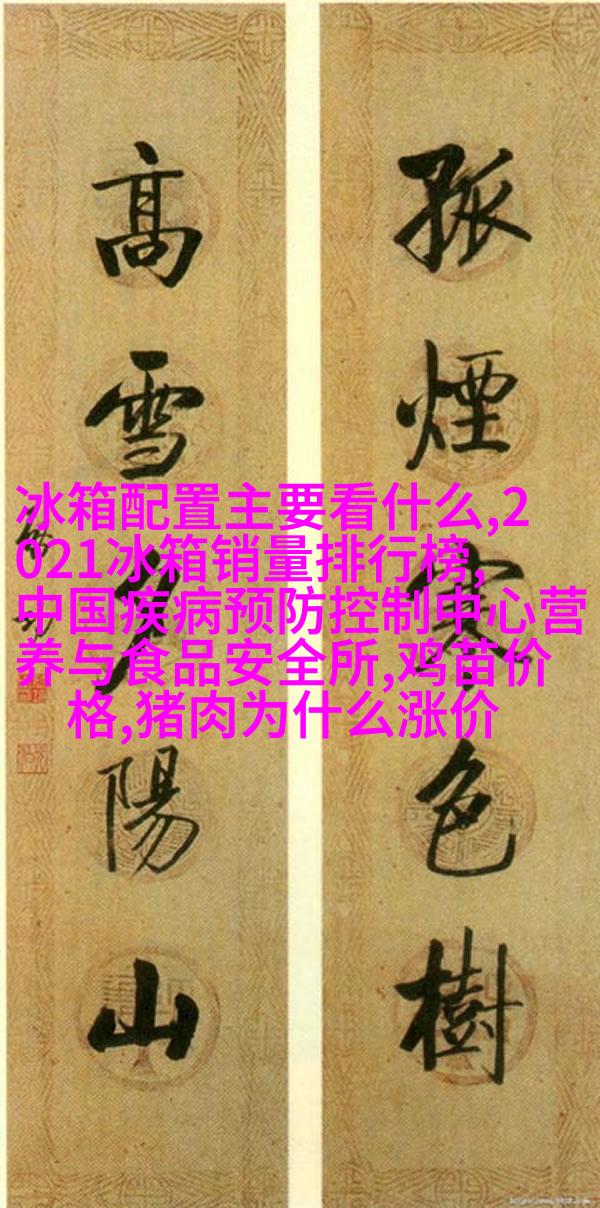 孤煙寒色樹
高雪夕陽山
冰箱配置主要看什么,2
021冰箱销量排行榜,
中国疾病预防控制中心营
养与食品安全所,鸡苗价
格,猪肉为什么涨价